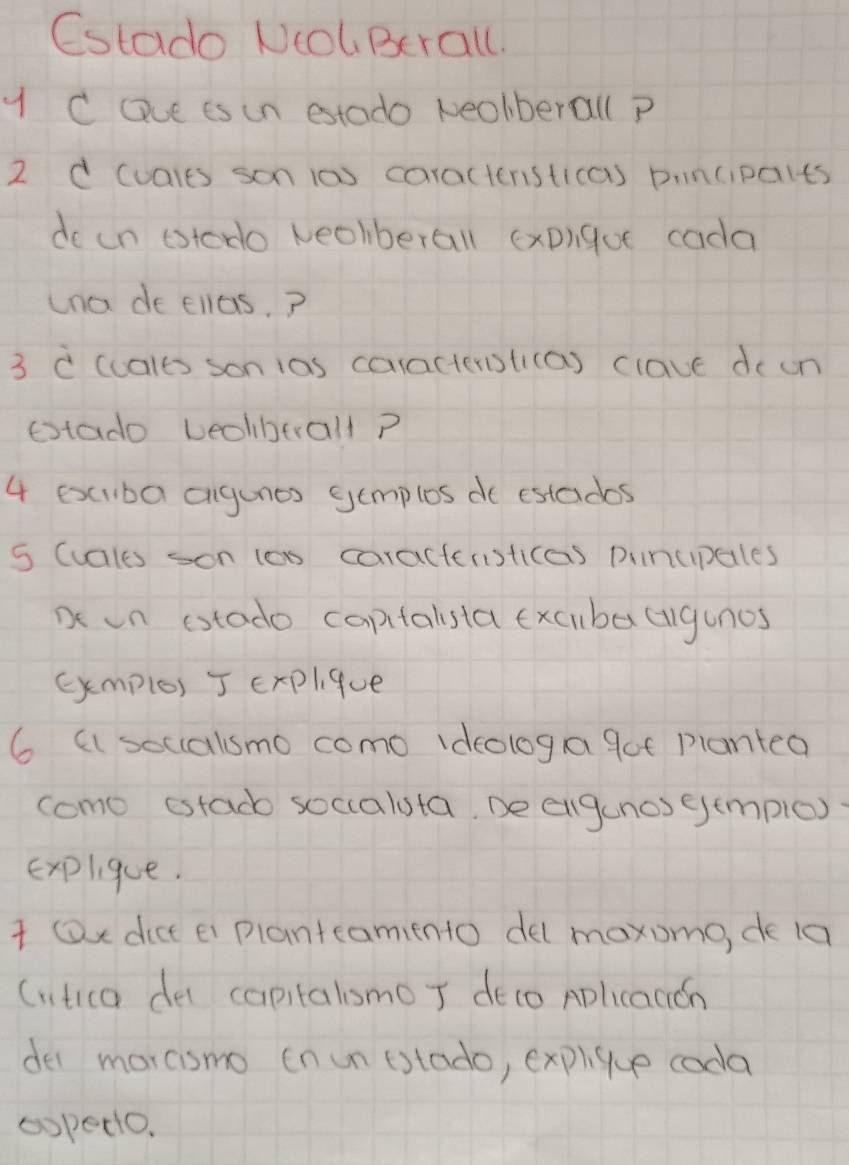 Estado Neoliberall.
1 ¿ Que es un estado Neoliberall ?
2 ¿ Cuales son las caracteristicas principales
de un estado Neoliberall explique cada
una de ellas. ?
3 ¿ Cuales son las caracteristicas clave de un
estado Leoliberall ?
4 escriba algunos ejemplos de estados
5 Cuales son las caracteristicas principales
De un estado capitalista excriba algunos
ejemplos y explique
6 el socialismo como ideologia que plantea
como estado socialista. De algunos ejemplos-
explique.
7 Que dice el planteamiento del maxismo, de la
Critica del capitalismo y de la Aplicación
del marcismo en un estado, explique cada
aspecto.